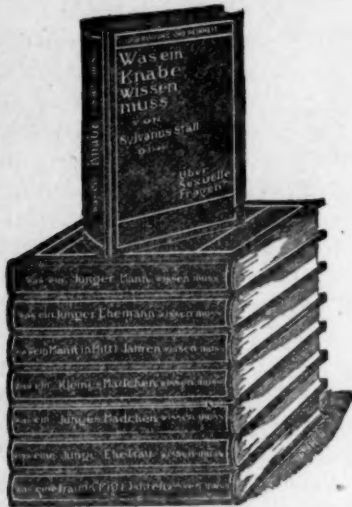 Was ein
Knabe
wissen
muss
VON
Sylvanus Stall
Über
Sexuelle
Fragen
Knabe
was ein Junger Mann wissen muss
was ein Junger Ehemann wissen muss
was ein Mann in Mittl Jahren wissen muss
was ein Kleines Mädchen wissen muss
was ein Junges Mädchen wissen muss
was eine Junge Ehefrau wissen muss
was eine Frau in Mittl Jahren wissen muss